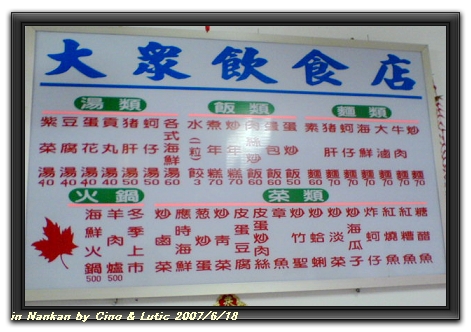 大眾飲食店
湯類
紫菜湯 40
豆腐湯 40
蛋花湯 40
貢丸湯 40
豬肝湯 50
蚵仔湯 50
各式海鮮湯 60
飯類
水餃(一粒) 3
煮年糕 70
炒年糕 70
肉絲炒飯 60
蛋包飯 60
蛋炒飯 50
麵類
素麵 60
豬肝麵 70
蚵仔麵 70
海鮮麵 70
大滷麵 70
牛肉麵 70
炒麵 70
火鍋
海鮮火鍋 500
羊肉爐 500
冬季上市
菜類
炒滷菜
應時海鮮
蔥蛋
炒青菜
皮蛋豆腐
皮蛋肉絲
章魚
炒竹聖
炒蛤蜊
炒淡菜
炒海瓜子
炸蚵仔
紅燒魚
紅糟魚
糖醋魚
in Nankan by Cino & Lutic 2007/6/18